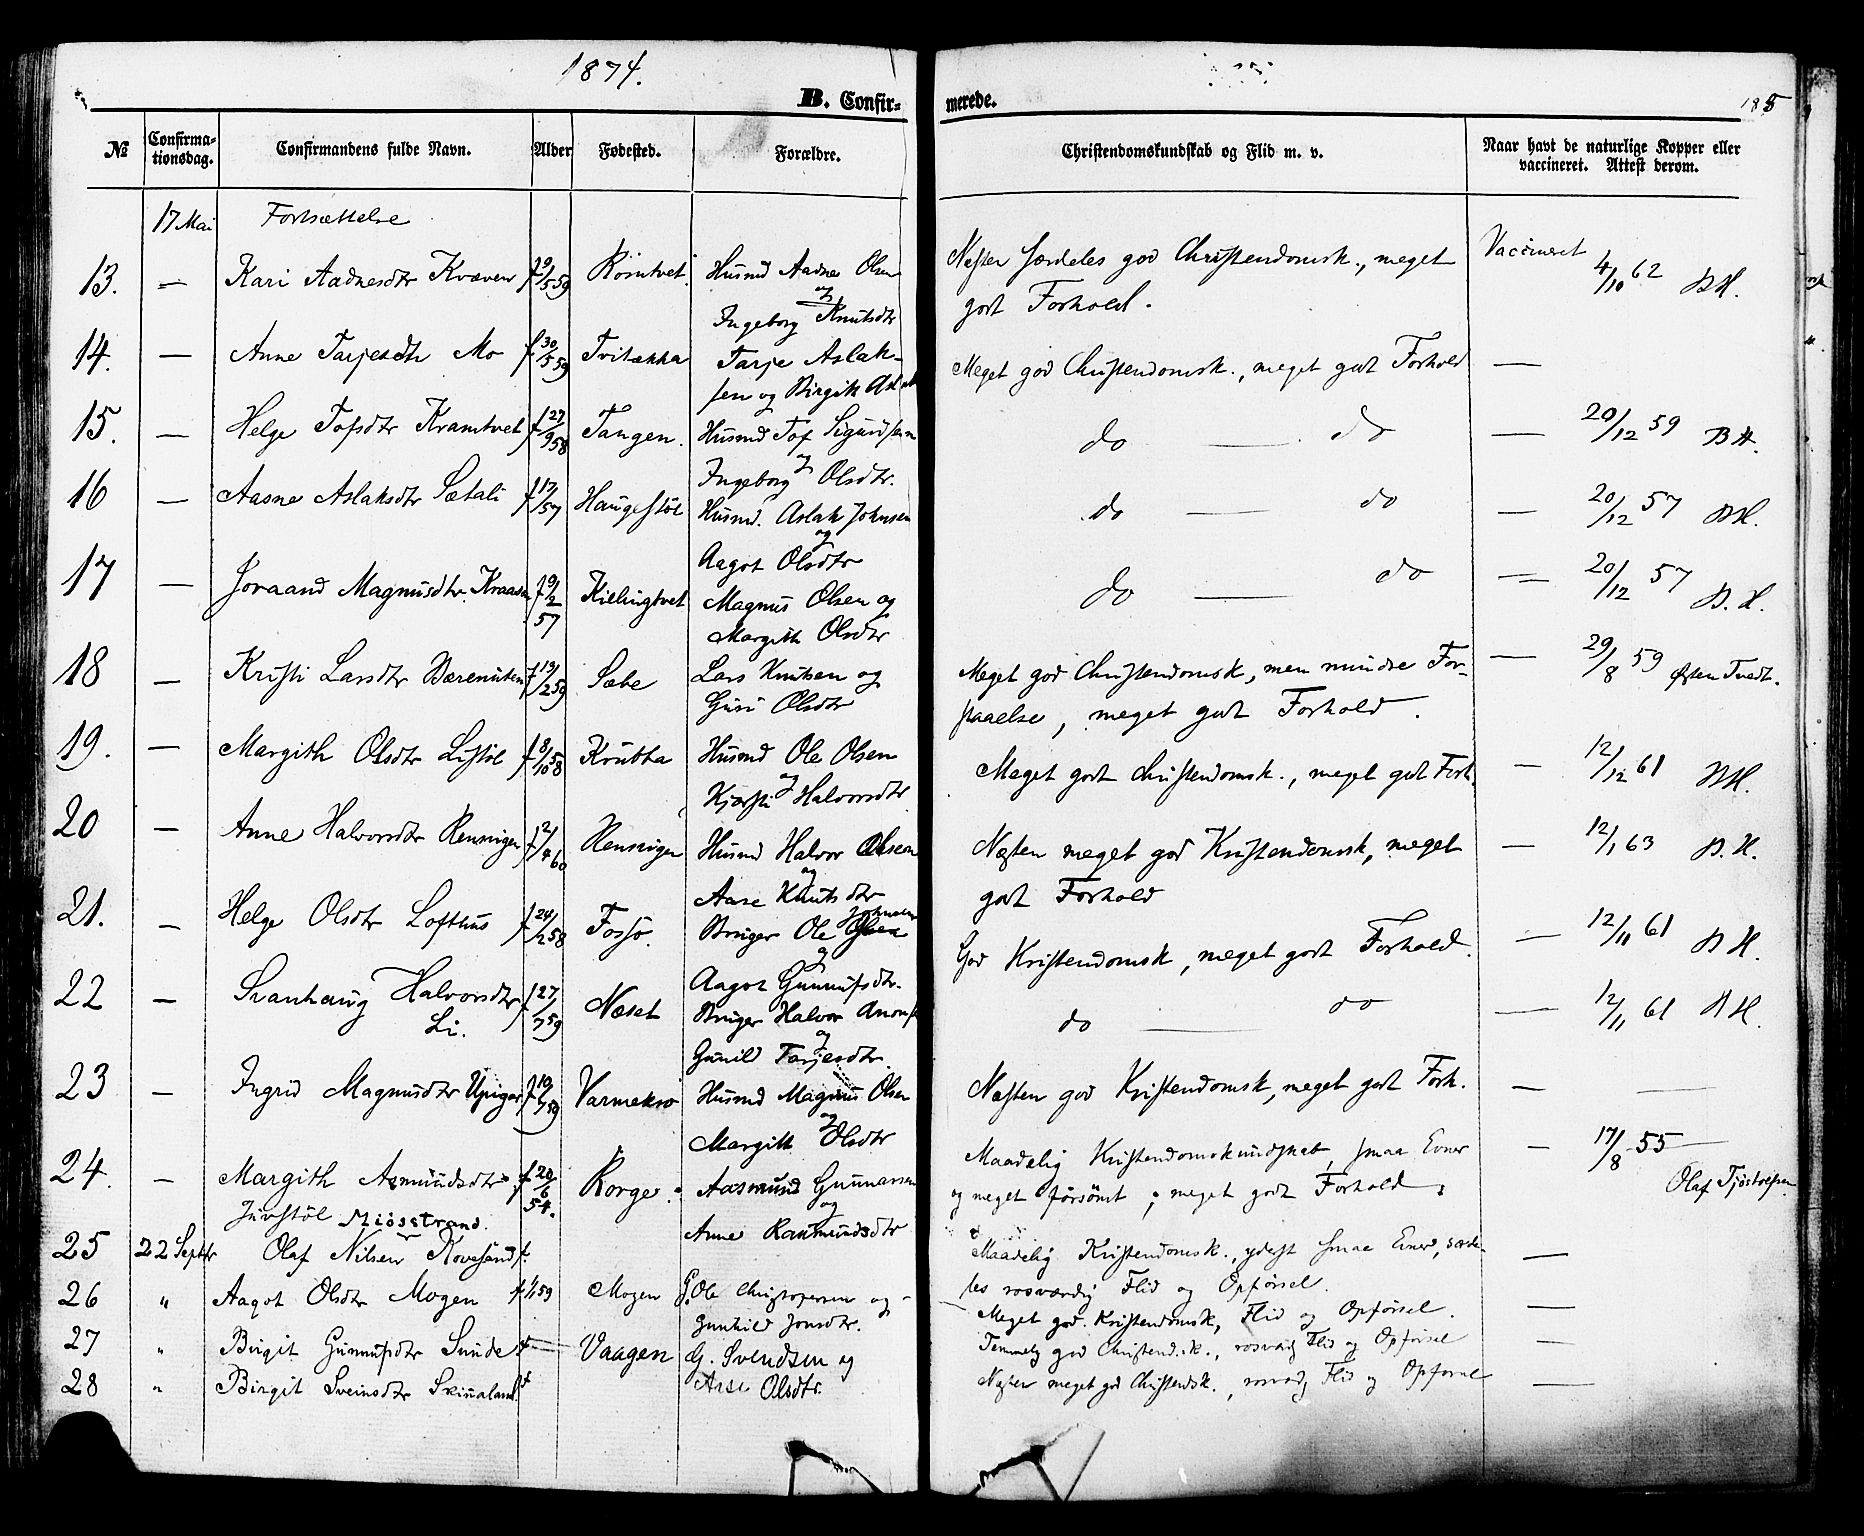 1874.
B. Confir-
merede.
185
№
Confirma-
tionsdag.
Confirmandens fulde Navn.
Alder
Fødested.
Forældre.
Christendomskundskab og Flid m. v.
Naar havt de naturlige Kopper eller
vaccineret. Attest derom.
17 Mai Fortsættelse
13. — Kari Aadnesdtr Kvæven f 9/5 59 Husmd Aadne Olsen
og
Ingeborg Knutsdtr
Næsten særdeles god Christendomsk., meget
godt Forhold.
Vaccineret 4/10 62 BH.
14. — Anne Tarjesdtr Mo f 30/5 59 Tvitækka Tarje Aslak-
sen og Birgith
Meget god Christendomsk., meget godt Forhold —
15. — Helge Tofsdtr Kramtvet f 27/9 58 Tangen. Husmd Tof Sigurdsen
og
Ingeborg Olsdtr.
do — do — 20/12 59 BH.
16 — Aasne Aslaksdtr Sætali f 17/ 57 Haugestöl Husmd. Aslak Johnsen
og
Aagot Olsdtr
do — do — 20/12 57 BH.
17 — Joraand Magnusdtr f 9/2 57 Kielingtvet Magnus Olsen og
Margith Olsdtr
do — do — 20/12 57 B. H.
18 — Kristi Larsdtr Bærenuten f 19/2 59 Sæbe Lars Knutsen og
Guri Olsdtr
Meget god Christendomsk, men mindre For-
staaelse, meget godt Forhold.
— 29/8 59 Østen Tvedt.
19. — Margith Olsdtr Listöl f 8/10 58 Krubba Husmd Ole Olsen
og
Kjersti Halvorsdtr
Meget godt Christendomsk., meget godt Forh. — 12/12 61 BH.
20 — Anne Halvorsdtr f 2/4 60 Husmd Halvor Olsen
og
Aase Knutsdtr
Næsten meget god Kristendomsk, meget
godt Forhold
— 12/1 63 B. H.
21. — Helge Olsdtr Lofthus f 24/2 58 Fossö. Bruger Ole Johnsen
og
Aagot Gunnufsdtr.
God Kristendomsk, meget godt Forhold. — 12/11 61 BH.
22 — Svanhaug Halvorsdtr f 27/7 59 Næset Bruger Halvor
Li.
og
Gunild Tarjesdtr.
do — do — 12/11 61 BH.
23 — Ingrid Magnusdtr f 19/7 59 Husmd Magnus Olsen
og
Margith Olsdtr
Næsten god Kristendomsk, meget godt Forh. — —
24. — Margith Asmundsdtr f 20/6 54. Rorge. Aasmund Gunnarsen
Juvstöl Miösstrand.
og
Anne Rasmundsdtr
Maadelig Kristendomskundskab, smaa Evner
og meget försömt, meget godt Forhold.
— 17/8 55 —
Olaf Tjöstolfsen
25 22 Septbr Olaf Nilsen Kovesand f.
Maadelig Kristendomsk., yderst smaa Evner, særde-
les rosværdig Flid og Opförsel. —
26 " Aagot Olsdtr Mogen f 1/1 59 Mogen G. Ole Christophersen og
Gunhild Jonsdtr.
Meget god Kristendomsk, Flid og Opförsel. —
27 " Birgit Gunnufsdtr Sunde f — Vaagen G. Svendsen og
Aase Olsdtr.
Temmelig god Christend.sk., rosværdig Flid og Opförsel —
28 " Birgit Sveinsdtr Skinaland f
Næsten meget god Christendsk., rosværdig Flid og Opförsel —